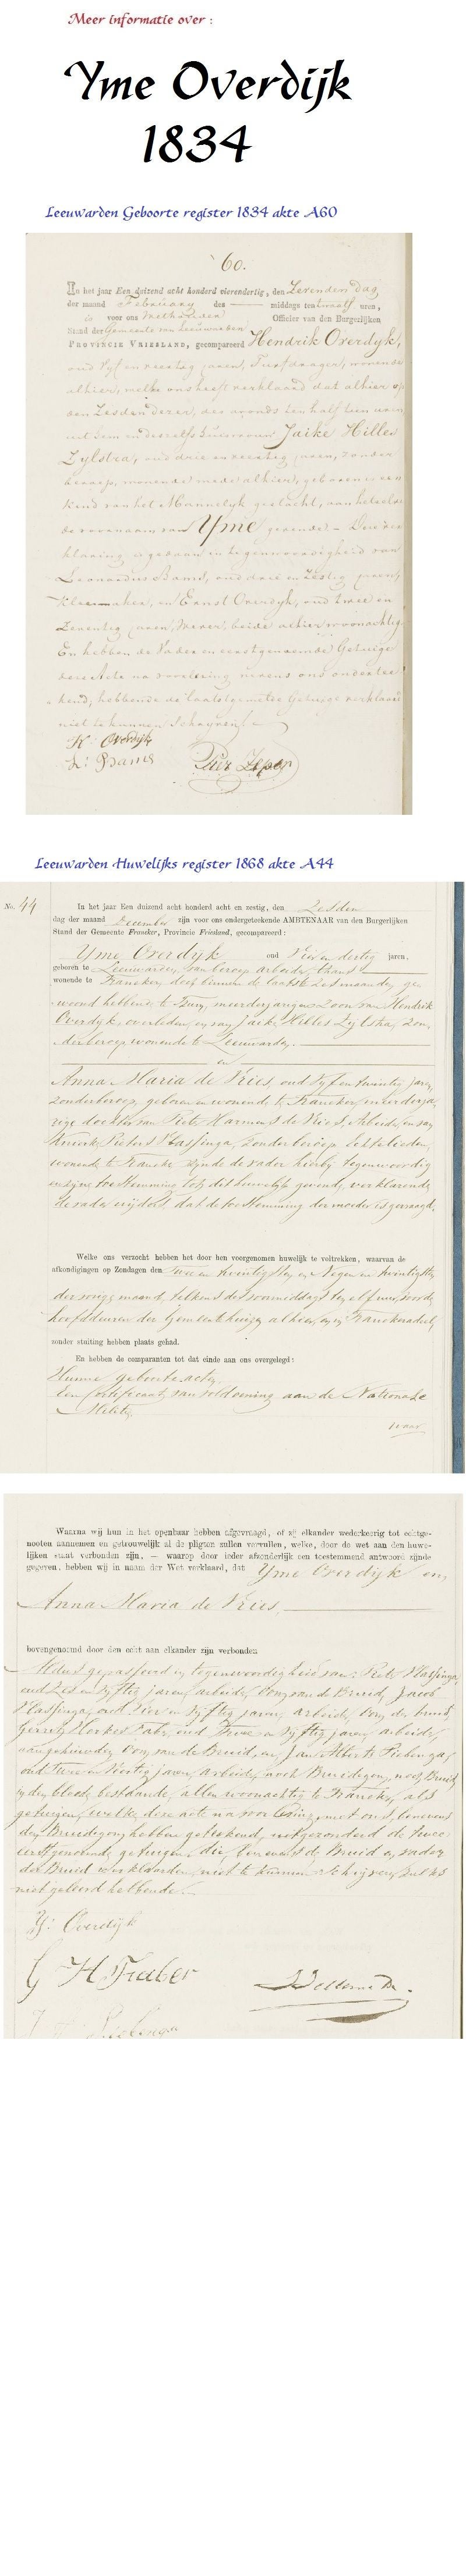 Meer informatie over :
Yme Overdijk
1834
Leeuwarden Geboorte register 1834 akte A60
60.
In het jaar Een duizend acht honderd vierendertig, den Zevenden dag
der maand February des middags ten twaalf uren,
is voor ons Officier van den Burgerlijken
Stand der Gemeente van Leeuwarden
PROVINCIE VRIESLAND, gecompareerd Hendrik Overdyk,
oud Vyf en veertig jaren, Turfdrager, wonende
alhier, welke ons heeft verklaard dat alhier op
den Zesden dezer, des avonds ten half tien uren
uit hem en deszelfs huisvrouw Jaike Hilles
Zylstra, oud drie en veertig jaren, zonder
beroep, wonende mede alhier, geboren is een
kind van het Mannelyk geslacht, aan hetwelk
de voornaam van Yme gegeven is. Deze ver
klaring is gedaan in tegenwoordigheid van
Leonardus Bams, oud drie en Zestig jaren,
Kleermaker, en Ernst Overdyk, oud twee en
Zeventig jaren, beide alhier woonachtig
En hebben de Vader en eerstgenoemde Getuige
deze Acte na voorlezing nevens ons ondertee
kend, hebbende de laatstgemelde Getuige verklaard
niet te kunnen schryven
H: Overdijk
L: Bams
Leeuwarden Huwelijks register 1868 akte A44
No. 44
In het jaar Een duizend acht honderd acht en zestig, den Zesden
dag der maand December zijn voor ons ondergeteekende AMBTENAAR van den Burgerlijken
Stand der Gemeente Franeker, Provincie Friesland, gecompareerd:
Yme Overdyk oud Vier en dertig jaren,
geboren te Leeuwarden, van beroep arbeider, thans
wonende te Franeker, doch binnen de laatste zes maanden ge
woond hebbende te meerderjarige Zoon van Hendrik
Overdyk, overleden, en van Jaike Hilles Zylstra, zon
der beroep wonende te Leeuwarden.
en
Anna Maria de Vries, oud Vyf en twintig jaren,
zonder beroep, geboren en wonende te Franeker, meerderja
rige dochter van Pieter Harmens de Vries, arbeider, en van
Pieters Hassinga, zonder beroep, Echtelieden,
wonende te Franeker zynde de vader hierby tegenwoordig
en zyne toestemming tot dit huwelyk gevende, verklarende
de vader wyders, dat de toestemming der moeder is gevraagd.
Welke ons verzocht hebben het door hen voorgenomen huwelijk te voltrekken, waarvan de
afkondigingen op Zondagen den Twee en twintigsten en Negen en twintigsten
der vorige maand, telkens des voormiddags ten elf uur, voor de
hoofddeuren der Gemeentehuizen alhier en
zonder stuiting hebben plaats gehad.
En hebben de comparanten tot dat einde aan ons overgelegd:
Hunne geboorteacten
Een Certificaat van voldoening aan de Nationale
Militie
waar
Waarna wij hun in het openbaar hebben afgevraagd, of zij elkander wederkeerig tot echtge-
nooten aannemen en getrouwelijk al de pligten zullen vervullen, welke, door de wet aan den huwe-
lijken staat verbonden zijn, — waarop door ieder afzonderlijk een toestemmend antwoord zijnde
gegeven, hebben wij in naam der Wet verklaard, dat Yme Overdyk en
Anna Maria de Vries
bovengenoemd door den echt aan elkander zijn verbonden
Aldus gepasseerd in tegenwoordigheid van: Hassinga
oud Zes en vyftig jaren, arbeider, Oom van de Bruid, Jacob
Hassinga, oud Vier en vyftig jaren, arbeider, Oom der bruid
Gerrit Faber, oud Twee en vyftig jaren, arbeider,
aangehuwden Oom van de Bruid, en Jan Alberts
oud Twee en Veertig jaren, arbeider, noch Bruidegom, noch Bruid
in den bloede bestaande, allen woonachtig te Franeker, als
getuigen, welke deze acte na voorlezing met ons, benevens
den Bruidegom hebben geteekend, uitgezonderd de twee
eerstgenoemde getuigen, die benevens de Bruid en vader
der Bruid verklaarden niet te kunnen schryven, zulks
niet geleerd hebbende.
Y: Overdijk
G H Faber